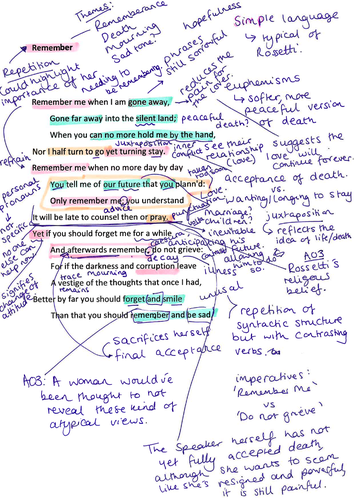 Themes:
- Rememberance
Death
mourning
Sad tone.
hopefulness
phrases
still sorrowful
Simple language
↳ typical of
Rossetti.
Remember
Repetition
Could highlight
importance of her
needing to
be remembered.
reduces the
pain for
the lover.
euphemisms
↳ softer, more
peaceful version
of death
Remember me when I am gone away,
Gone far away into the silent land;
peaceful
death?
When you can no more hold me by the hand,
juxtaposition
Nor I half turn to go yet turning stay.
inner
conflict
see their
relationship
suggests the
love will
continue forever.
refrain
Remember me when no more day by day
You tell me of our future that you plann'd:
Only remember me; you understand
advice
It will be late to counsel then or pray.
acceptance of death.
vs.
wanting/longing to stay
marriage?
children?
juxtaposition
↳ reflects the
idea of life/death
personal
pronouns
not
specific
no one
can
help
Yet if you should forget me for a while
And afterwards remember, do not grieve:
anticipating his
future.
inevitable
allowing
him to do
so.
decay
For if the darkness and corruption leave
illness
trace
mourning
remains
A vestige of the thoughts that once I had,
unusual
Better by far you should forget and smile
Than that you should remember and be sad.
Signifies
change of
attitude
A03
Rossetti's
religious
belief.
repetition of
syntactic structure
but with contrasting
verbs.
Sacrifices herself
final acceptance
A03: A woman would've
been thought to not
reveal these kind of
atypical views.
imperatives:
'Remember Me'
vs
'Do not grieve'
The Speaker herself has not
yet fully accepted death,
although she wants to seem
like she's resigned and powerful,
it is still painful.